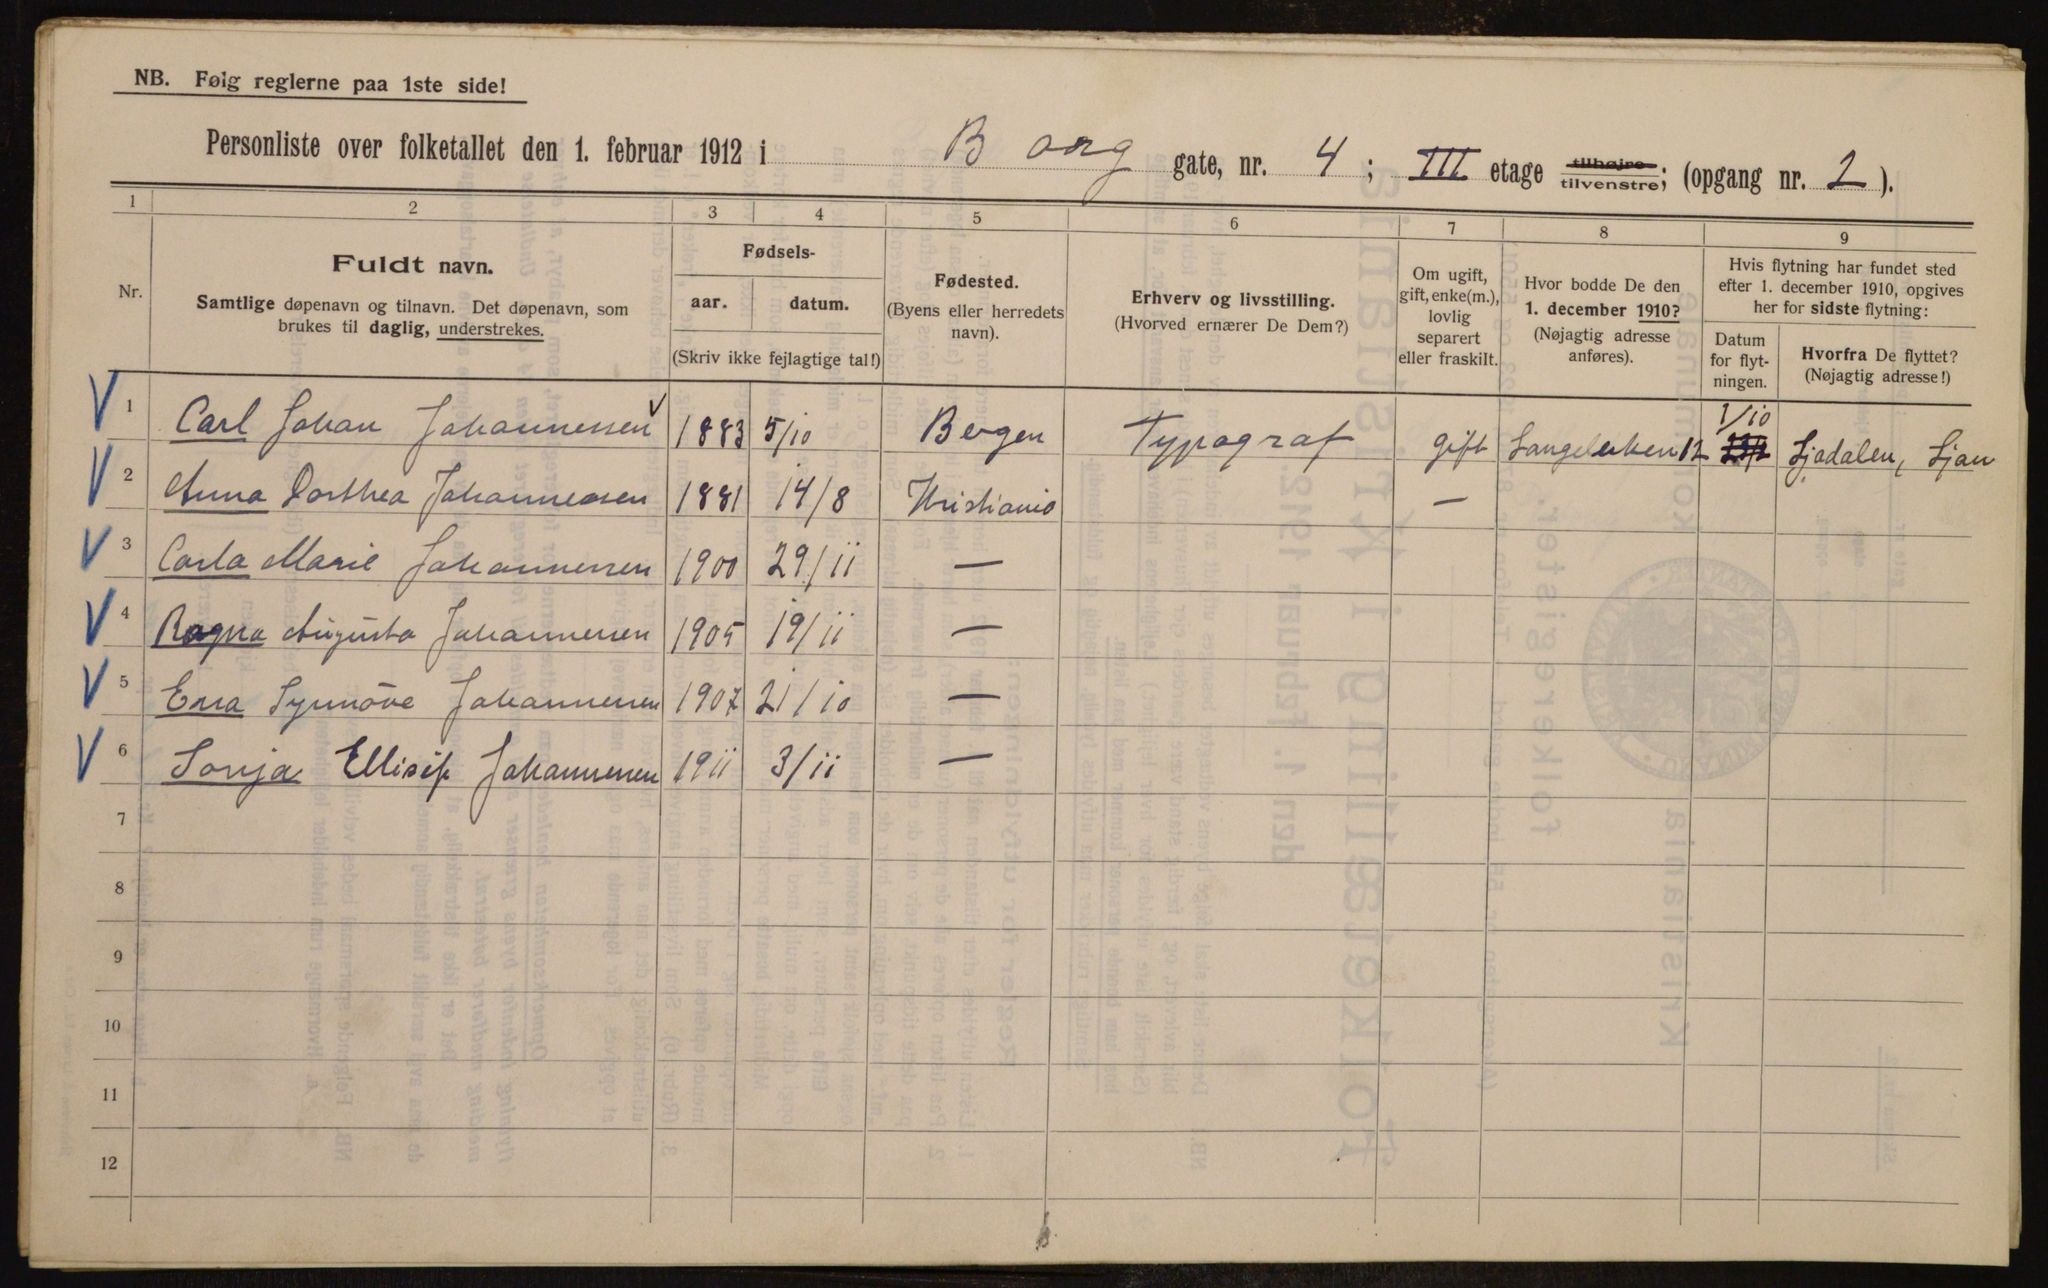 NB. Følg reglerne paa 1ste side!
Personliste over folketallet den 1. februar 1912 i Borg gate, nr. 4; III etage tilhøjre tilvenstre; (opgang nr. 2).
1 2 3 4 5 6 7 8 9
Nr.
Fuldt navn.
Samtlige døpenavn og tilnavn. Det døpenavn, som
brukes til daglig, understrekes.
Fødsels-
aar. datum.
(Skriv ikke fejlagtige tal!)
Fødested.
(Byens eller herredets
navn).
Erhverv og livsstilling.
(Hvorved ernærer De Dem?)
Om ugift,
gift, enke(m.),
lovlig
separert
eller fraskilt.
Hvor bodde De den
1. december 1910?
(Nøjagtig adresse
anføres).
Hvis flytning har fundet sted
efter 1. december 1910, opgives
her for sidste flytning:
Datum
for flyt-
ningen.
Hvorfra De flyttet?
(Nøjagtig adresse!)
1 Carl Johan Johannessen 1883 5/10 Bergen Typograf gift 12 1/10 Ljadalen, Ljan
2 Anna Dorthea Johannessen 1881 14/8 Kristiania —
3 Carla Marie Johannessen 1900 29/11 —
4 Ragna Augusta Johannessen 1905 19/11 —
5 Erna Synnöve Johannessen 1907 21/10 —
6 Sonja Ellisif Johannessen 1911 3/11 —
7
8
9
10
11
12